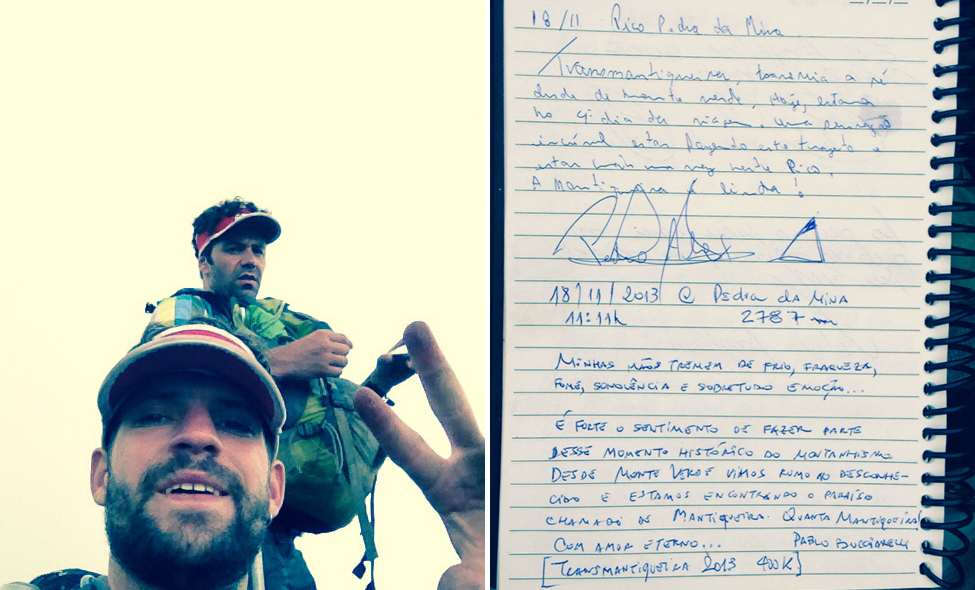 18/11 Pico Pedra da Mina
Transmantiqueira, travessia a pé
desde de monte verde, Hoje, estamos
no 4º dia da viagem. Uma sensação
incrível estar fazendo este trajeto e
estar mais uma vez neste Pico.
A Mantiqueira é linda!
Pedro Alex
18/11/2013 @ Pedra da Mina
11:11h 2787 m
MINHAS MÃOS TREMEM DE FRIO, FRAQUEZA,
FOME, SONOLÊNCIA E SOBRETUDO EMOÇÃO...
É FORTE O SENTIMENTO DE FAZER PARTE
DESSE MOMENTO HISTÓRICO DO MONTANHISMO
DESDE MONTE VERDE VIMOS RUMO AO DESCONHE-
CIDO E ESTAMOS ENCONTRANDO O PARAÍSO
CHAMADO DE MANTIQUEIRA. QUANTA MANTIQUEIRA!
COM AMOR ETERNO... PABLO BUCCIARELLI
[TRANSMANTIQUEIRA 2013 400K]